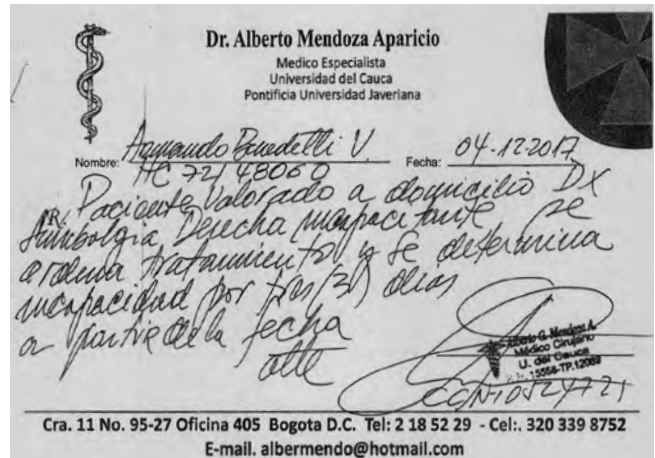 Dr. Alberto Mendoza Aparicio
Medico Especialista
Universidad del Cauca
Pontificia Universidad Javeriana
Nombre: Armando Benedetti V. Fecha: 04-12-2017
HC 72148060
R. Paciente Valorado a domicilio DX
Lumbalgia Derecha incapacitante se
ordena tratamiento y se determina
incapacidad por tres (3) dias
a partir de la fecha
atte
Alberto G. Mendoza A.
Médico Cirujano
U. del Cauca
15558-TP.12069
Cra. 11 No. 95-27 Oficina 405 Bogota D.C. Tel: 2 18 52 29 - Cel:. 320 339 8752
E-mail. albermendo@hotmail.com